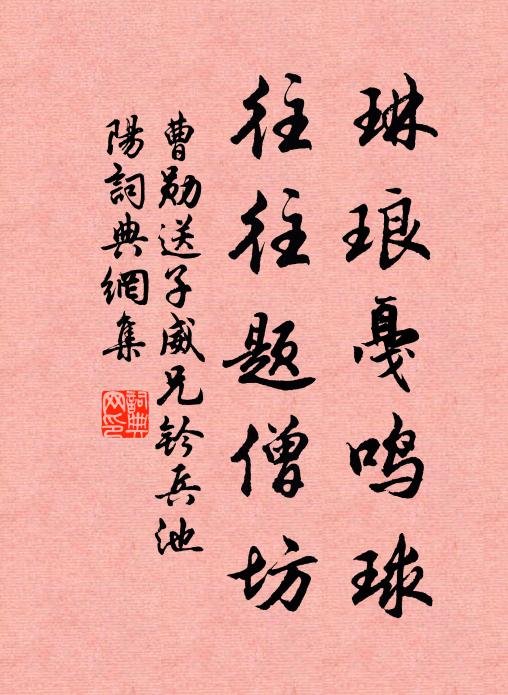 琳琅戛鸣球
往往题僧坊
曹勋送子威兄钤兵池
陽詞典網集
詞典网印